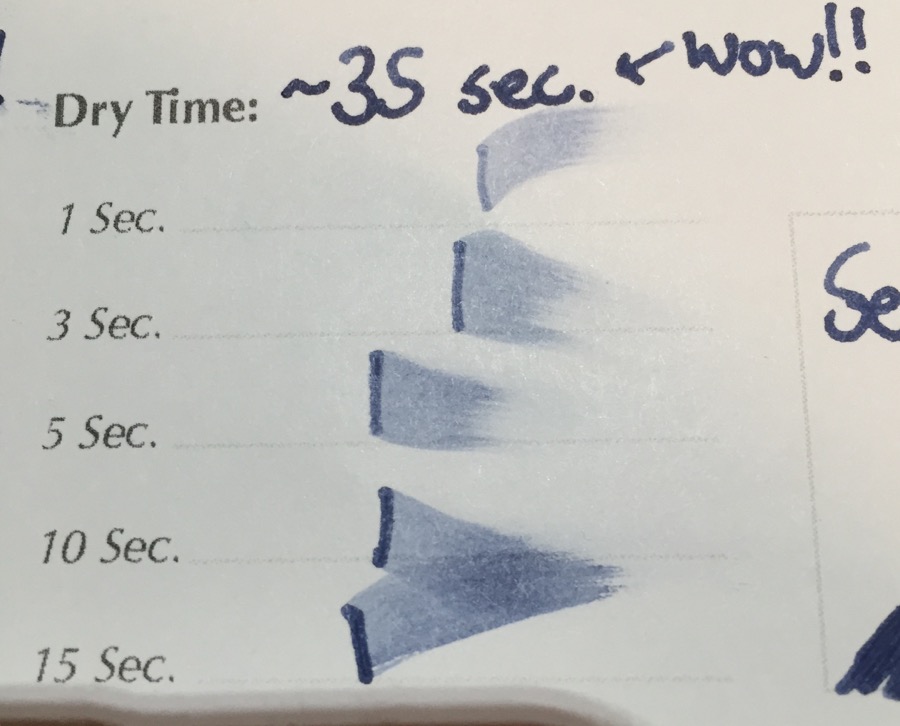 Dry Time: ~35 sec. ← wow!!
1 Sec.
3 Sec.
Se
5 Sec.
10 Sec.
15 Sec.